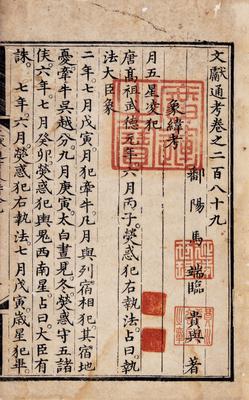 文獻通考卷之二百八十九
鄱陽馬端臨貴與著
象緯考
月五星凌犯
唐髙祖武德元年六月丙子熒惑犯右執法占曰執
法大臣象
二年七月戊寅月犯牽牛凡月與列宿相犯其宿地
憂牽牛吳越分九月庚寅太白晝見冬熒惑守五諸
侯六年七月癸卯熒惑犯輿鬼西南星占曰大臣有
誅七年六月熒惑犯右執法七月戊寅歲星犯畢